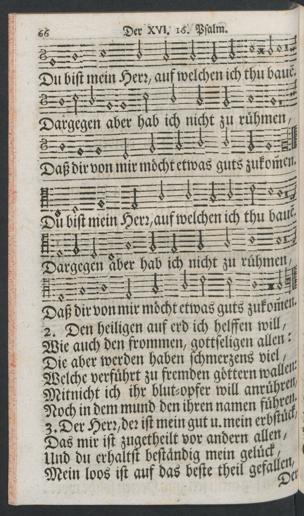 66 Der XVI. 16. Psalm.
Du bist mein Herr, auf welchen ich thu baue.
Dargegen aber hab ich nicht zu rühmen,
Daß dir von mir möcht etwas guts zukom̄en.
Du bist mein Herr, auf welchen ich thu baue.
Dargegen aber hab ich nicht zu rühmen,
Daß dir von mir möcht etwas guts zukom̄en
2. Den heiligen auf erd ich helffen will,
Wie auch den frommen, gottseligen allen:
Die aber werden haben schmerzens viel,
Welche verführt zu fremden göttern wallen:
Mitnicht ich ihr blut-opfer will anrühren,
Noch in dem mund den ihren namen führen.
3. Der Herr, der ist mein gut u. mein erbstück,
Das mir ist zugetheilt vor andern allen,
Und du erhaltst beständig mein gelück,
Mein loos ist auf das beste theil gefallen,
Der